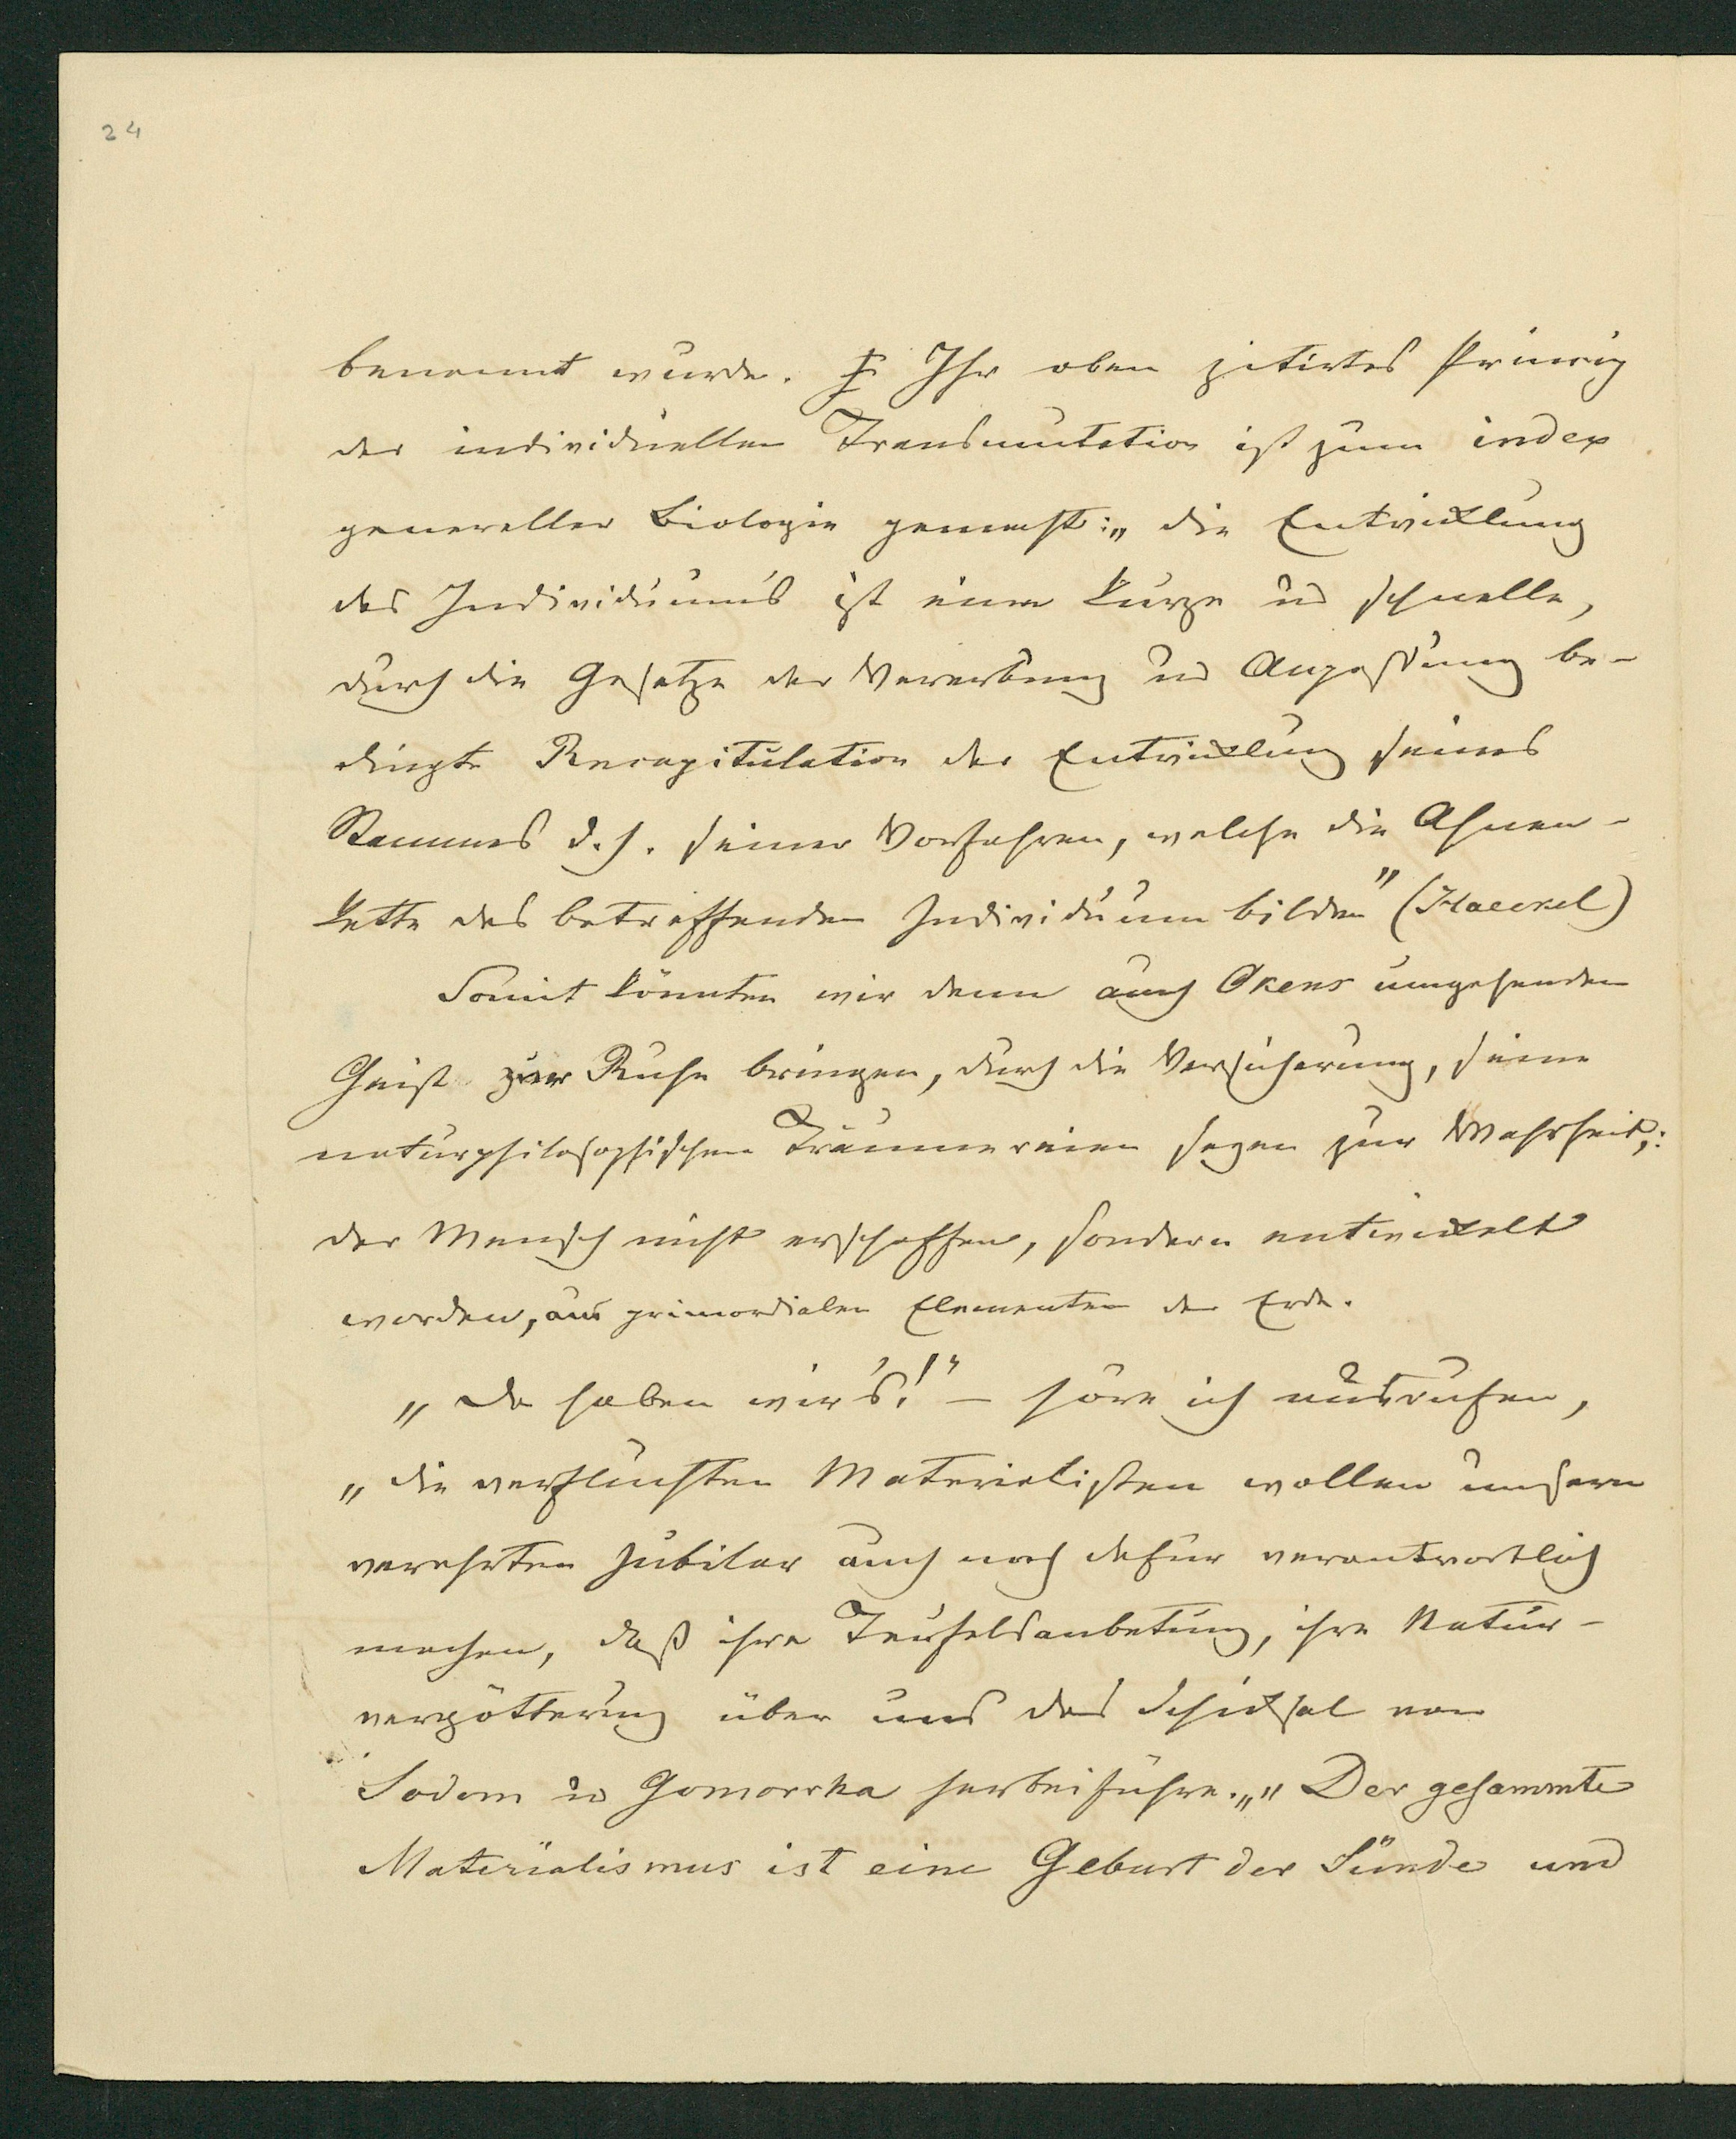 24
benannt wurde. Ihr oben zitirtes Princip
der individuellen Transmutation ist zum index
genereller Biologie gemacht: „die Entwicklung
des Individuums ist eine kurze und schnelle,
durch die Gesetze der Vererbung und Anpassung be-
dingte Recapitulation der Entwicklung seines
Stammes d. h. seiner Vorfahren, welche die Ahnen-
kette des betreffenden Individuum bilden" (Haeckel)
Somit könnten wir denn auch Okens umgehenden
Geist zur Ruhe bringen, durch die Versicherung, seine
naturphilosophischen Träumereien seyen zur Wahrheit:
der Mensch nicht erschaffen, sondern entwickelt
worden, aus primordialen Elementen der Erde.
„Da haben wir's!" – höre ich ausrufen,
„die verfluchten Materialisten wollen unsern
verehrten Jubilar auch noch dafür verantwortlich
machen, daß ihre Teufelsanbetung, ihre Natur-
vergötterung über uns das Schicksal von
Sodom u Gomorrha herbeiführe. „„Der gesammte
Materialismus ist eine Geburt der Sünde und